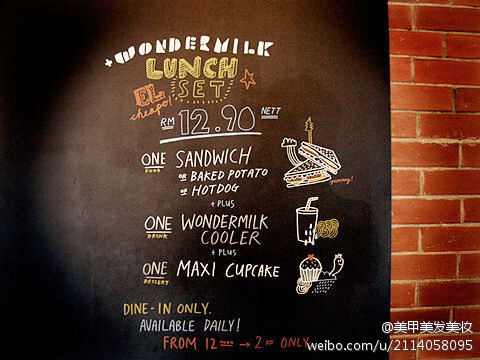 +WONDERMILK
LUNCH
SET
EL
cheapo!
RM 12.90 NETT
ONE FOOD SANDWICH
OR BAKED POTATO
OR HOTDOG
yummy!
+ PLUS
ONE DRINK WONDERMILK
COOLER
+ PLUS
ONE DESSERT MAXI CUPCAKE
DINE-IN ONLY.
AVAILABLE DAILY!
FROM 12 NOON → 2 PM ONLY
@美甲美发美妆
weibo.com/u/2114058095